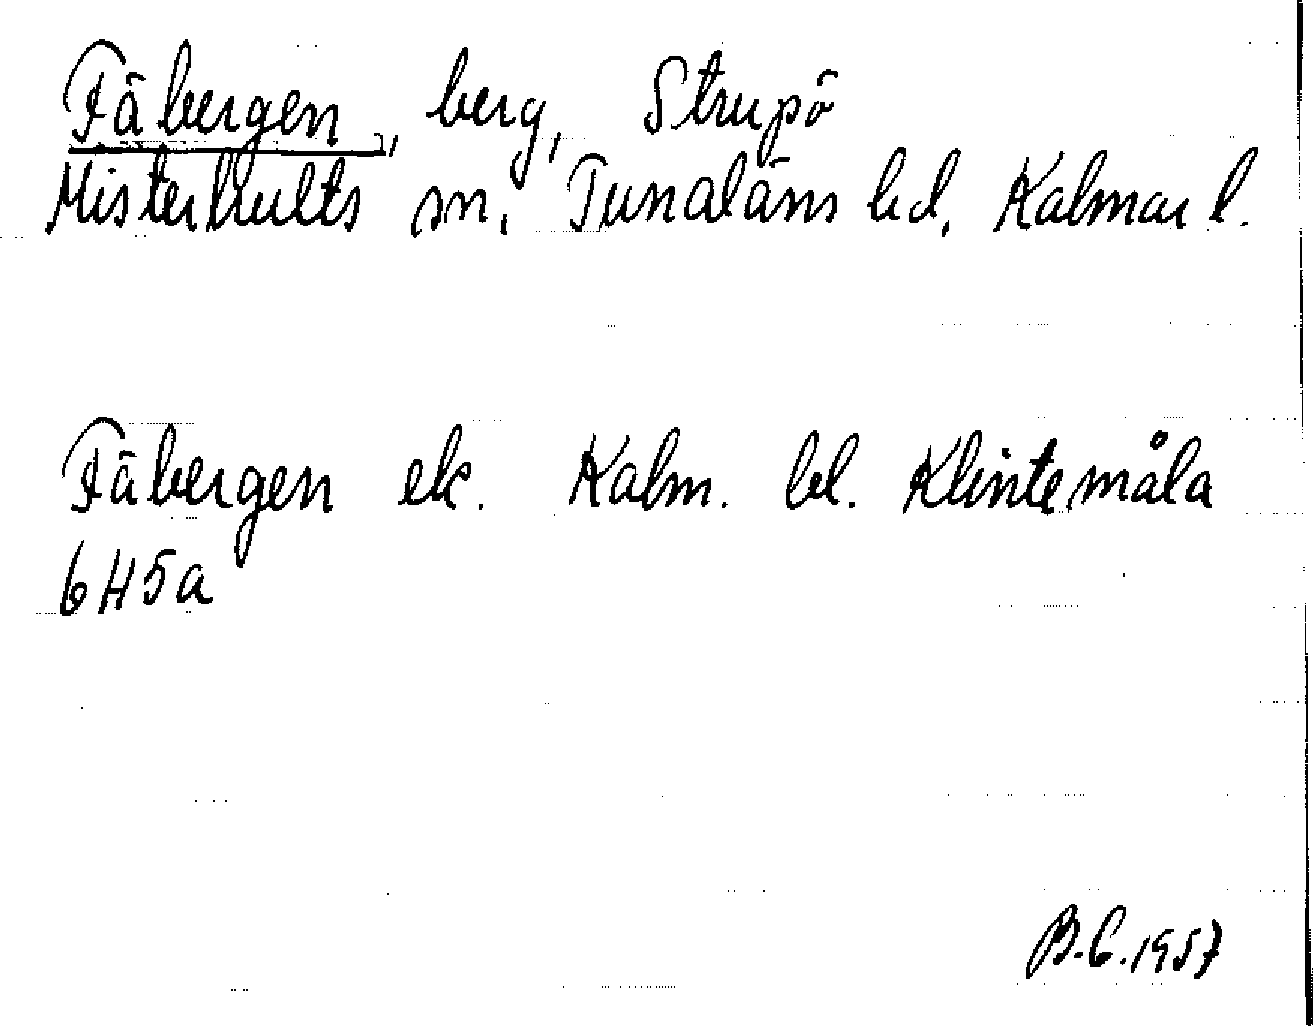 Fäbergen, berg, Strupö
Misterhults sn, Tunaläns hd, Kalmar l.
Fäbergen ek. Kalm. bl. Klintemåla
6H5a
B.C. 1957